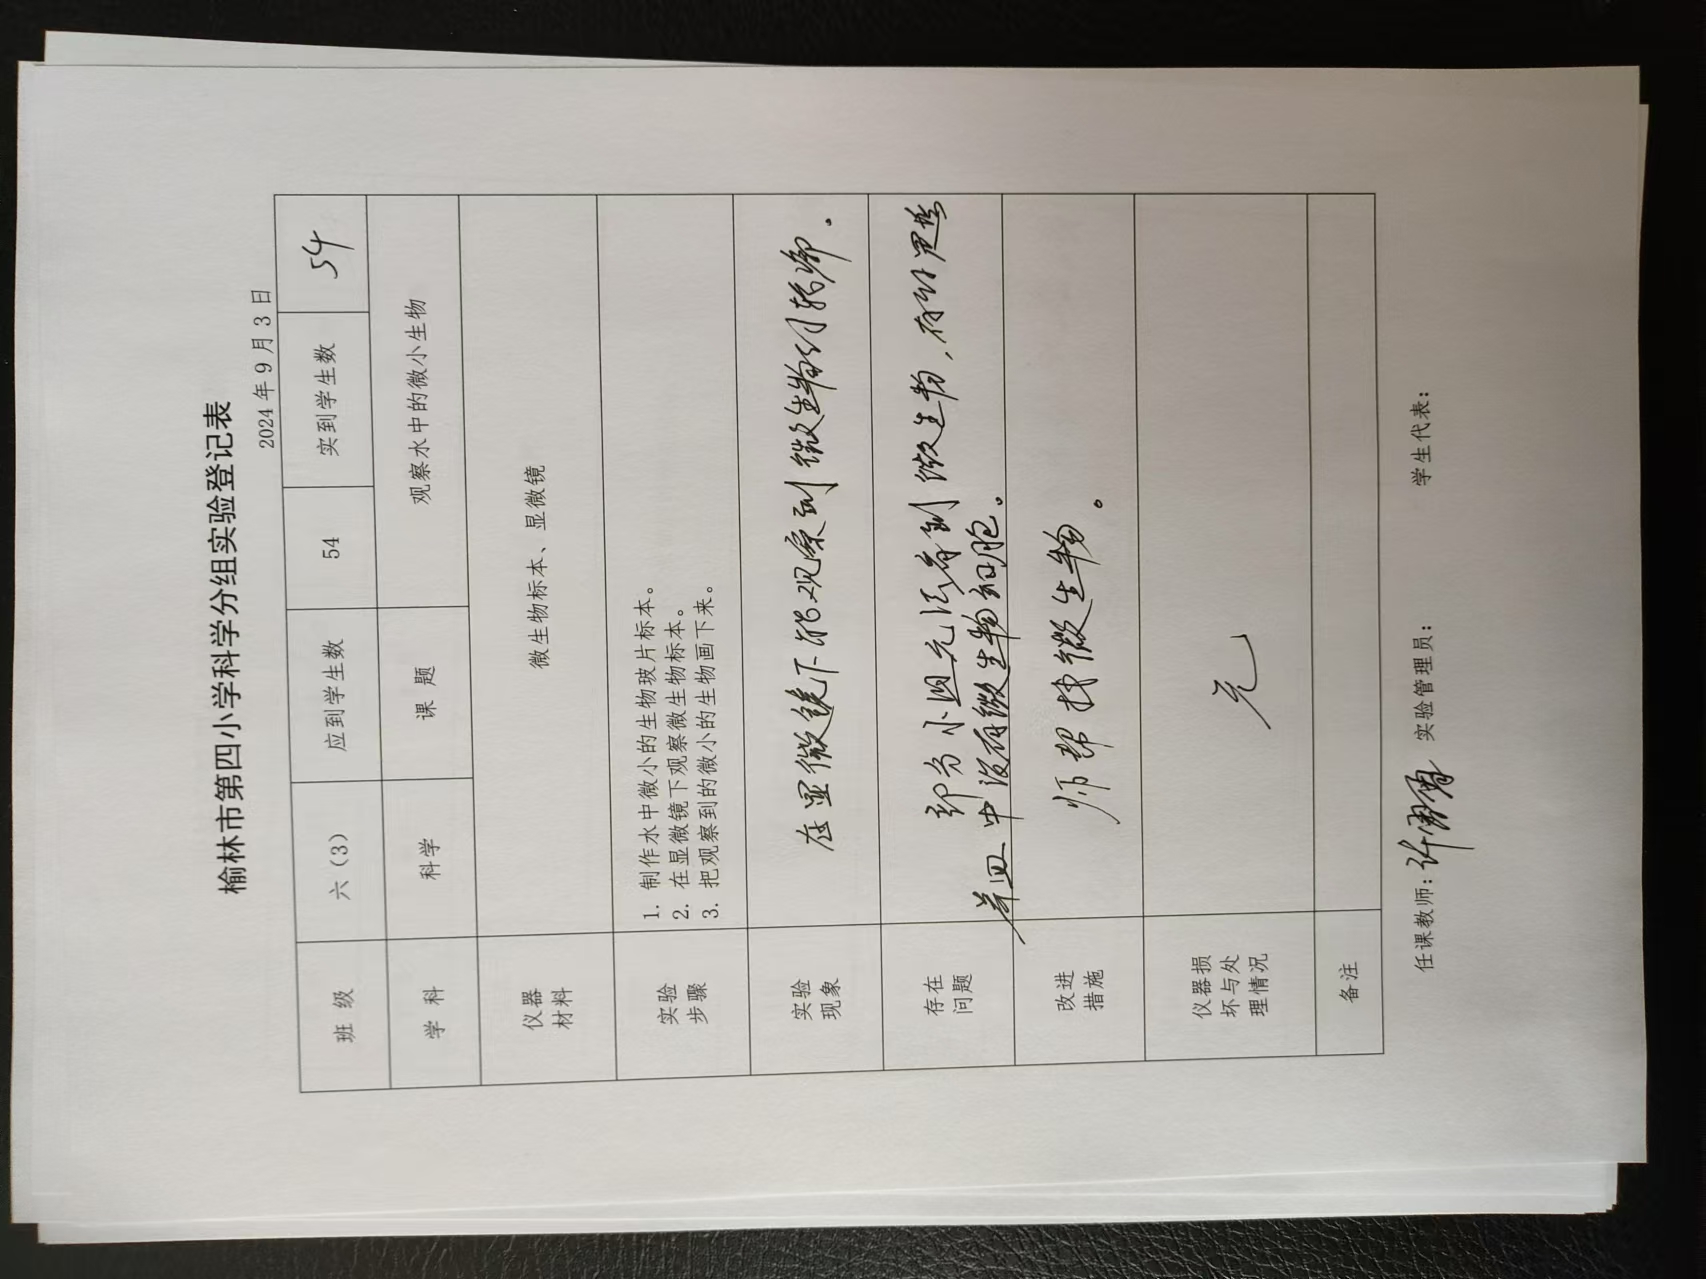 榆林市第四小学科学分组实验登记表
2024 年 9 月 3 日
班 级 六（3） 应到学生数 54 实到学生数 54
学 科 科学 课 题 观察水中的微小生物
仪器
材料
微生物标本、显微镜
实验
步骤
1. 制作水中微小的生物玻片标本。
2. 在显微镜下观察微生物标本。
3. 把观察到的微小的生物画下来。
实验
现象
在显微镜下能观察到微生物的
存在
问题
部分小组无法看到微生物，存的
中没有微生物细胞。
改进
措施
师帮找微生物。
仪器损
坏与处
理情况
无
备注
任课教师：许 实验管理员： 学生代表：